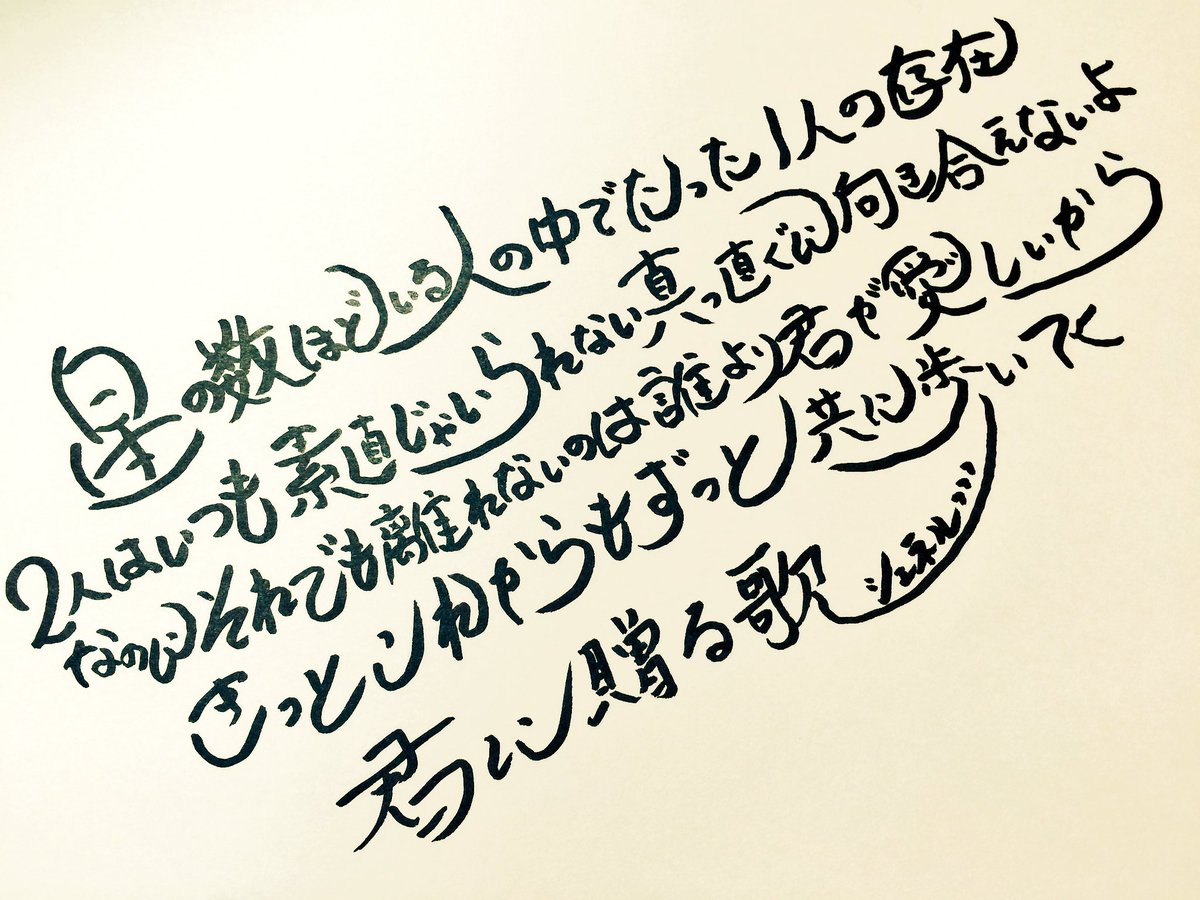 星の数ほどいる人の中でたった1人の存在
2人はいつも素直じゃいられない真っ直ぐに向き合えないよ
なのにそれでも離れないのは誰より君が愛しいから
きっとこれからもずっと共に歩いてく
君に贈る歌
シェネル